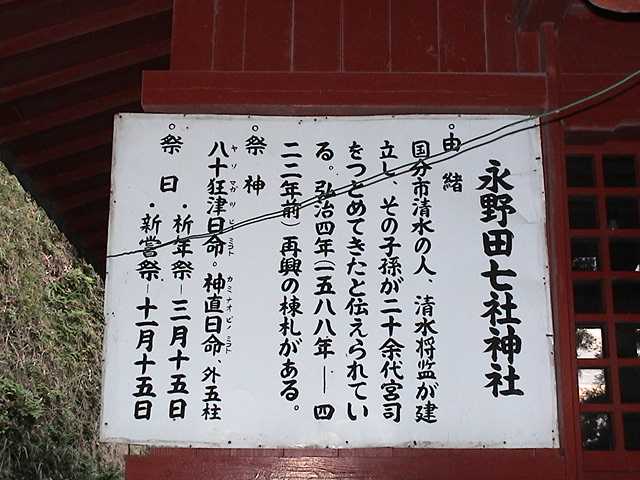 永野田七社神社
○由緒
国分市清水の人、清水将監が建
立し、その子孫が二十余代宮司
をつとめてきたと伝えられてい
る。弘治四年(一五八八年―四
二二年前)再興の棟札がある。
○祭神
八十狂津日命。神直日命、外五柱
ヤソマガツヒノミコト
カミナオビノミコト
○祭日
・祈年祭―三月十五日
・新嘗祭―十一月十五日